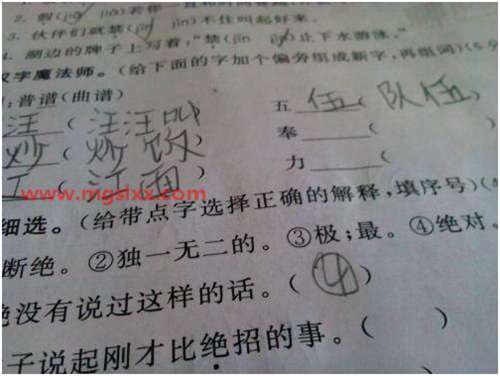 2. 假(jiǎ jià)若你一直
3. 伙伴们就禁(jīn jìn)不住叫起好来。
4. 湖边的牌子上写着，“禁(jīn jìn)止下水游泳。”
汉字魔法师。(给下面的字加个偏旁组成新字，再组词)(6分
:普谱(曲谱)
汪(汪汪叫 五 伍(队伍
炒(炒饭 奉 (
江(江面) 力 (
www.mgslxx.com
细选。(给带点字选择正确的解释，填序号)(4
断绝。②独一无二的。③极；最。④绝对。
绝没有说过这样的话。(④)
子说起刚才比绝招的事。( )